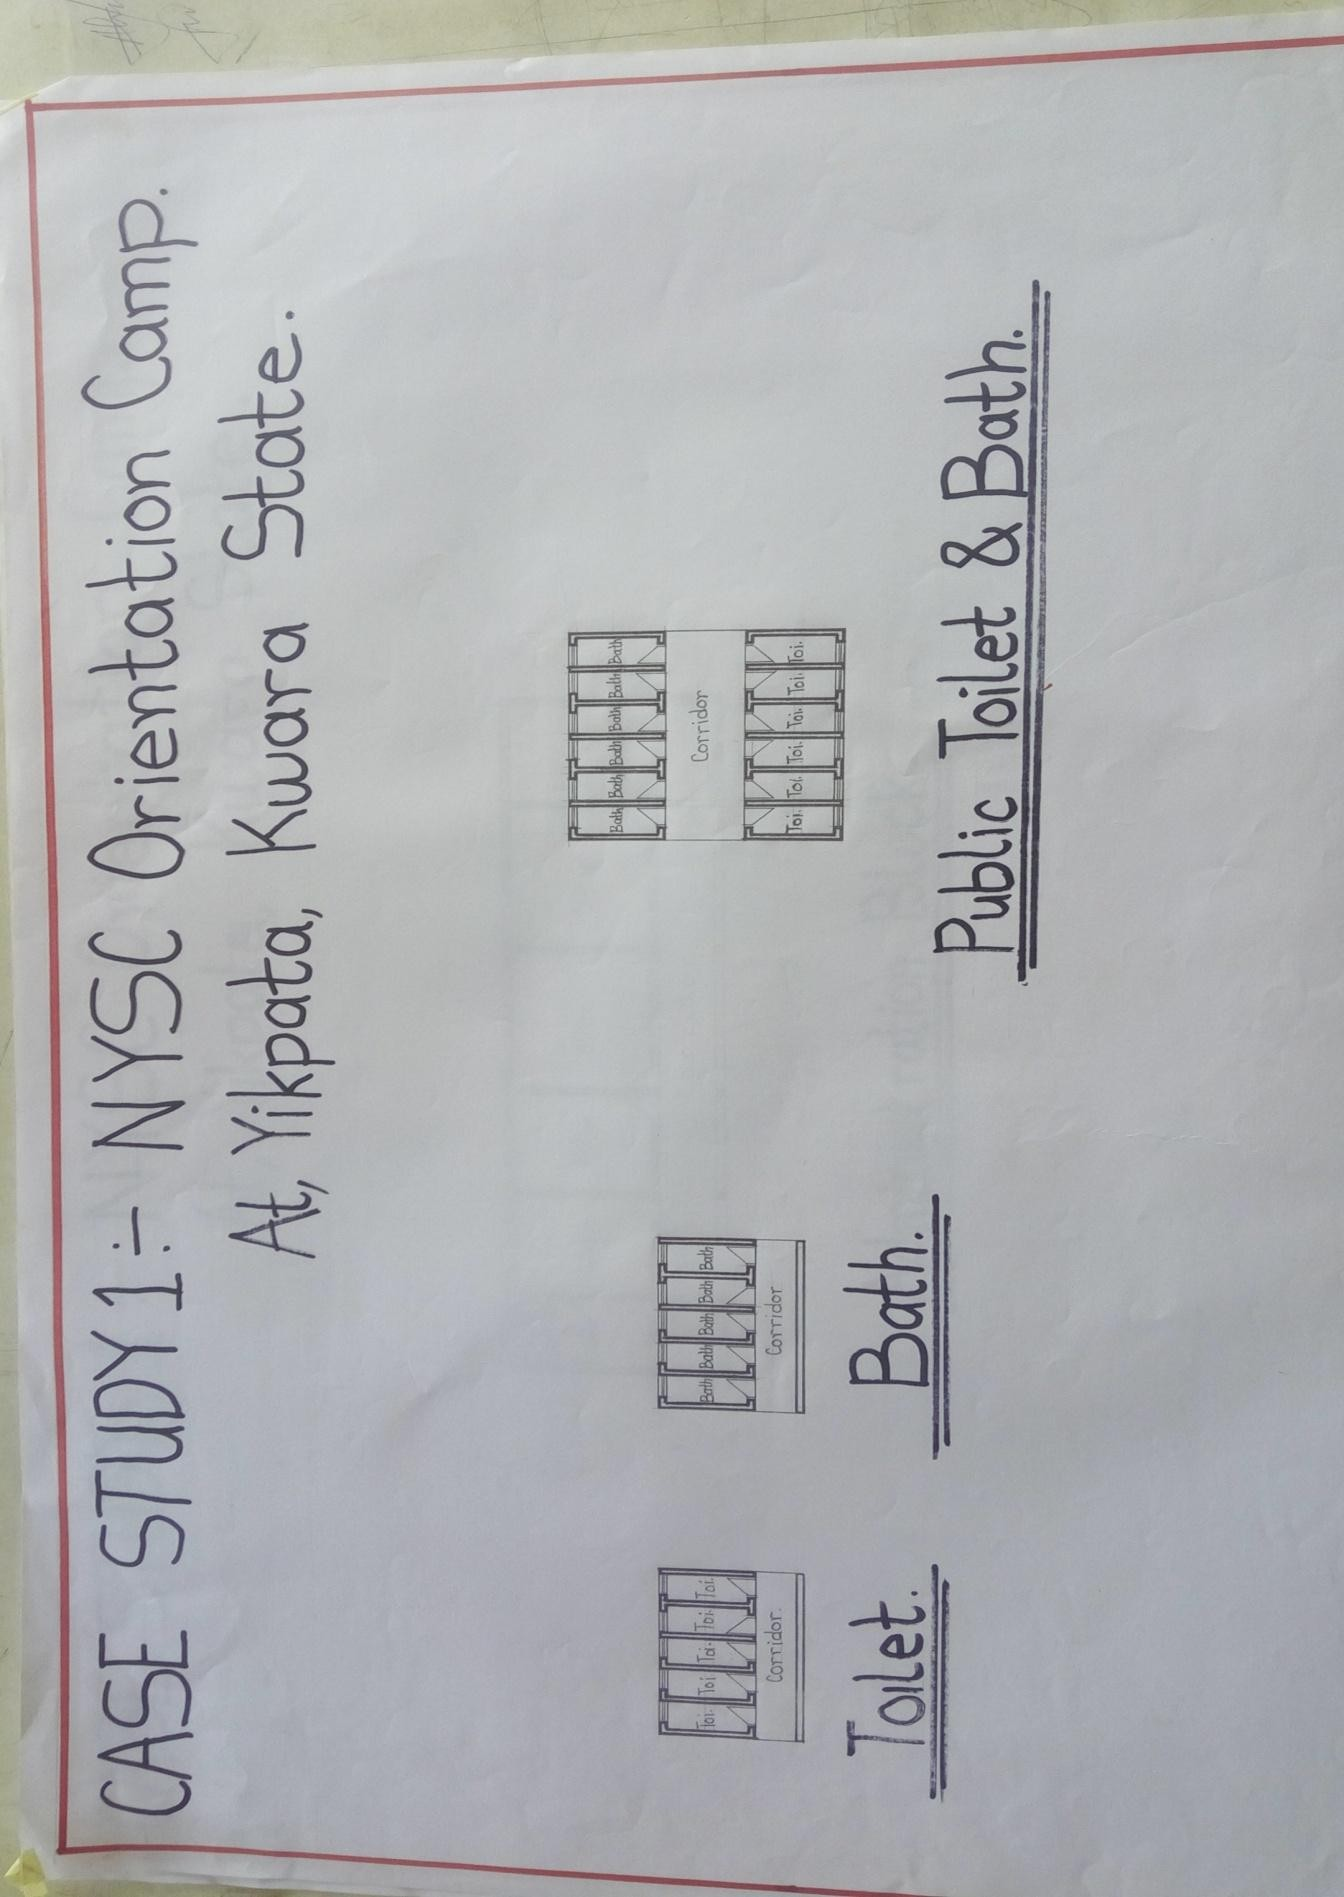 CASE STUDY 1:- NYSC Orientation Camp.
At, Yikpata, Kwara State.
Toi. Toi Toi. Toi. Toi.
Corridor.
Toilet.
Bath Bath Bath Bath Bath
Corridor
Bath.
Bath Bath Bath Bath Bath Bath
Corridor
Toi. Toi. Toi. Toi. Toi. Toi.
Public Toilet & Bath.